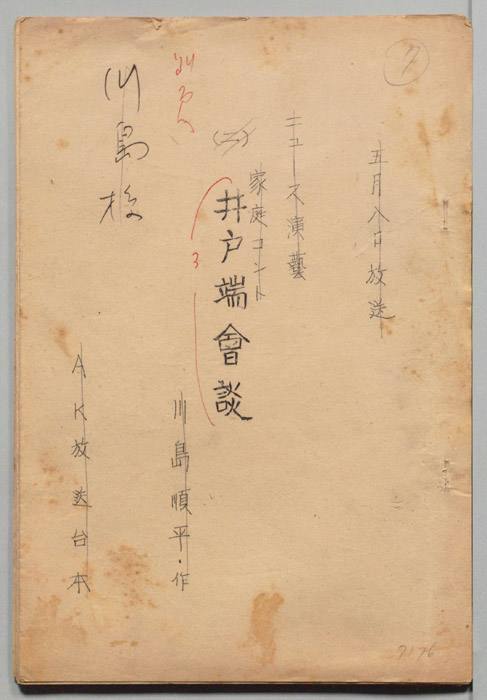 五月八日放送
ニュース演藝
家庭コント
(二)
井戸端會談
3
川島順平・作
川島様
AK放送台本
7176